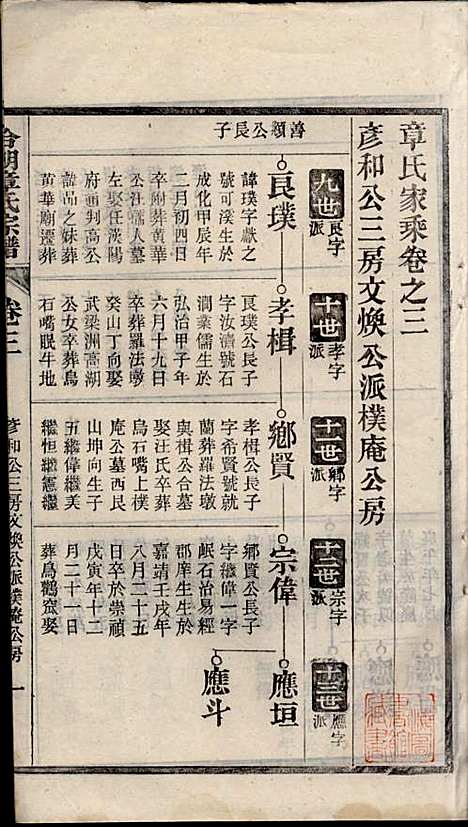 章氏家乘卷之三
彦和公三房文煥公派樸庵公房
九世
良字
派
十世
孝字
派
十一世
鄉字
派
十二世
宗字
派
十三世
應字
派
善額公長子
良璞
孝楫
鄉賢
宗偉
應垣
應斗
諱璞字獻之
號可溪生於
成化甲辰年
二月初四日
卒附葬黃華
公汪孺人墓
左娶任漢陽
府通判高公
諱品之妹葬
黃華廟遷葬
良璞公長子
字汝濟號石
澗業儒生於
弘治甲子年
六月十九日
卒葬羅法墩
癸山丁向娶
武梁洲高湖
公女卒葬烏
石嘴眠牛地
孝楫公長子
字希賢號就
蘭葬羅法墩
與楫公合墓
娶汪氏卒葬
烏石嘴上樸
庵公墓西艮
山坤向生子
五繼偉繼美
繼恒繼憲繼
鄉賢公長子
字繼偉一字
岷石治易經
郡庠生生於
嘉靖壬戌年
八月二十五
日卒於崇禎
戊寅年十二
月二十一日
葬烏鶴窩娶
章氏宗譜
卷三
彦和公三房文煥公派樸庵公房
一